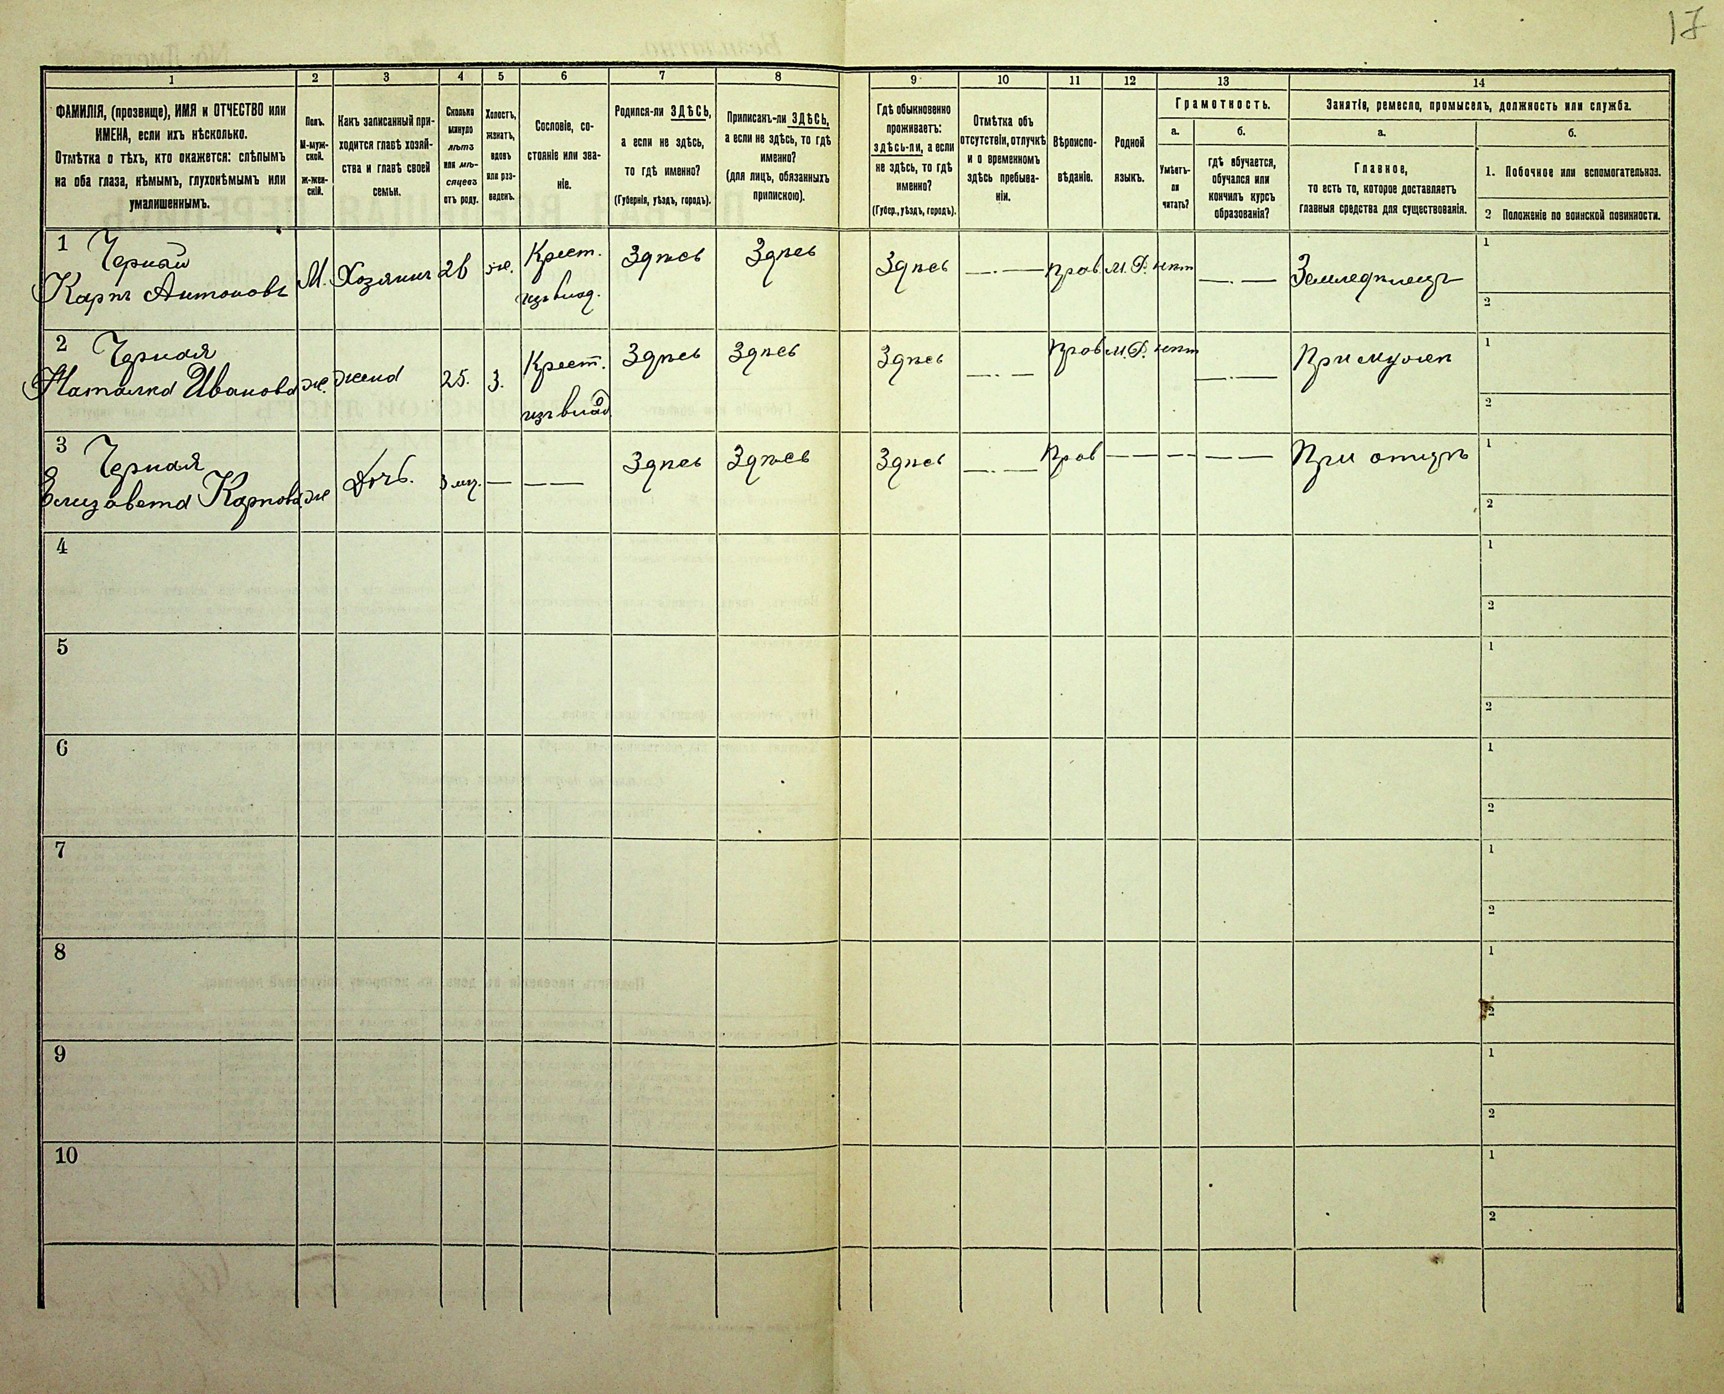 17
1 2 3 4 5 6 7 8 9 10 11 12 13 14
ФАМИЛІЯ, (прозвище), ИМЯ и ОТЧЕСТВО или
ИМЕНА, если ихъ нѣсколько.
Отмѣтка о тѣхъ, кто окажется: слѣпымъ
на оба глаза, нѣмымъ, глухонѣмымъ или
умалишеннымъ.
Полъ.
М-муж-
ской.
ж-жен-
скій.
Какъ записанный при-
ходится главѣ хозяй-
ства и главѣ своей
семьи.
Сколько
минуло
лѣтъ
или мѣ-
сяцевъ
отъ роду.
Холостъ,
женатъ,
вдовъ
или раз-
веденъ.
Сословіе, со-
стояніе или зва-
ніе.
Родился-ли ЗДѢСЬ,
а если не здѣсь,
то гдѣ именно?
(Губернія, уѣздъ, городъ).
Приписанъ-ли ЗДѢСЬ,
а если не здѣсь, то гдѣ
именно?
(для лицъ, обязанныхъ
припискою).
Гдѣ обыкновенно
проживаетъ:
здѣсь-ли, а если
не здѣсь, то гдѣ
именно?
(Губер., уѣздъ, городъ).
Отмѣтка объ
отсутствіи, отлучкѣ
и о временномъ
здѣсь пребыва-
ніи.
Вѣроиспо-
вѣданіе.
Родной
языкъ.
Грамотность.
а. б.
Умѣетъ-
ли
читать?
гдѣ обучается,
обучался или
кончилъ курсъ
образованія?
Занятіе, ремесло, промыселъ, должность или служба.
а. б.
Главное,
то есть то, которое доставляетъ
главныя средства для существованія.
1. Побочное или вспомогательное.
2 Положеніе по воинской повинности.
1 Черный
Карпъ Антоновъ М. Хозяинъ 26 же. Крест.
изъ влад. Здѣсь Здѣсь Здѣсь —.— Прав М.Р. нѣт —.— Земледѣлецъ
1
2
2 Черная
Наталка Иванова же. жена 25. з. Крест.
изъ влад Здѣсь Здѣсь Здѣсь —.— Прав М.Р. нѣт —.— При мужѣ
1
2
3 Черная
Елизавета Карпова же Дочь. 3 мѣс. — — — Здѣсь Здѣсь Здѣсь —.— Прав — — — — — — При отцѣ
1
2
4
1
2
5
1
2
6
1
2
7
1
2
8
1
2
9
1
2
10
1
2